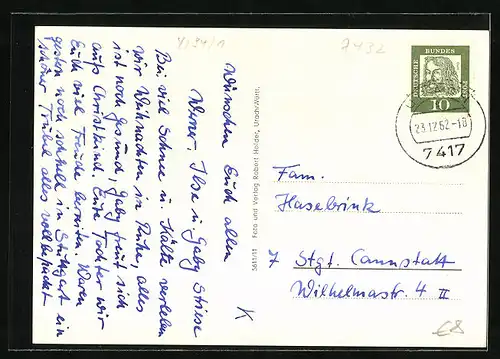 4/34/1
7432
Bei viel Schnee u. Kälte verleben
wir Weihnachten in Ruhe, alles
ist noch gesund, Gaby freut sich
aufs Christkind, Eure Tochter wir
Euch viel Freude bereiten. Waren
gestern noch schnell in Stuttgart ein
schöner Trubel alles vollbepackt
Wünschen Euch allen
Werner, Ilse u. Gaby Striese
K
5611/11 Foto und Verlag Robert Holder, Urach/Württ.
DEUTSCHE
BUNDES
POST
10
23.12.62-18
7417
Fam.
Haselbrink
7 Stgt. Cannstatt
Wilhelmastr. 4 II
€8